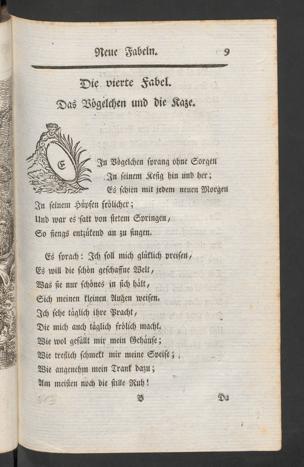 Neue Fabeln. 9
Die vierte Fabel.
Das Vögelchen und die Kaze.
EIn Vögelchen sprang ohne Sorgen
In seinem Kefig hin und her;
Es schien mit jedem neuen Morgen
In seinem Hüpfen frölicher;
Und war es satt von stetem Springen,
So fiengs entzükend an zu singen.
Es sprach: Ich soll mich glüklich preisen,
Es will die schön geschaffne Welt,
Was sie nur schönes in sich hält,
Sich meinen kleinen Augen weisen.
Ich sehe täglich ihre Pracht,
Die mich auch täglich frölich macht.
Wie wol gefällt mir mein Gehäuse;
Wie treflich schmekt mir meine Speise;
Wie angenehm mein Trank dazu;
Am meisten noch die stille Ruh!
B Da